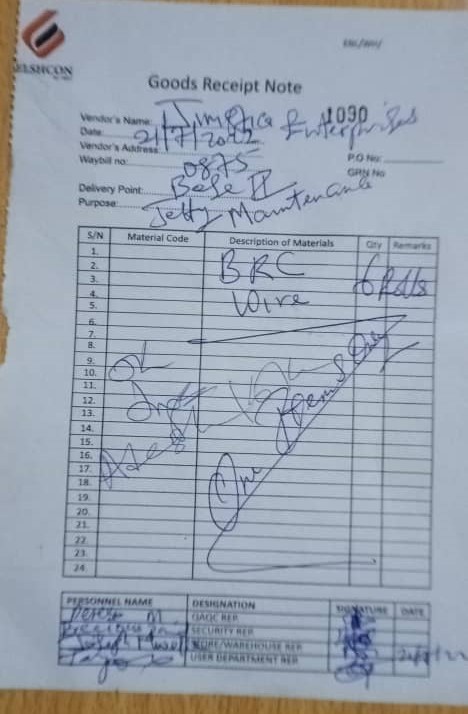 ELSHCON
Goods Receipt Note
1090
Vendor's Name: Enterprises
Date: 21/7/2022
Vendor's Address:
Waybill no: 0875
P.O No:
GRN No
Delivery Point: Base II
Purpose: Jetty Maintenance
S/N Material Code Description of Materials Qty Remarks
1.
2. BRC 6 Rolls
3.
4. Wire
5.
6.
7.
8.
9.
10.
11.
12.
13.
14.
15.
16.
17.
18.
19.
20.
21.
22.
23.
24.
One Item Only
PERSONNEL NAME DESIGNATION SIGNATURE DATE
QAQC REP
SECURITY REP
STORE/WAREHOUSE REP
USER DEPARTMENT REP